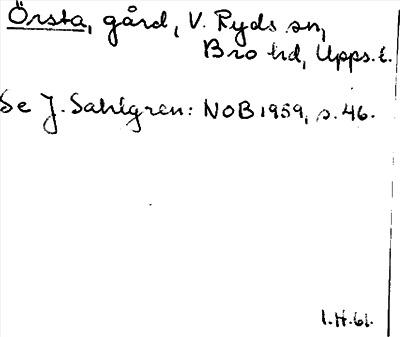 Örsta, gård, V. Ryds sn,
Bro hd, Upps.l.
Se J. Sahlgren: NOB 1959, s. 46.
I.H.61.